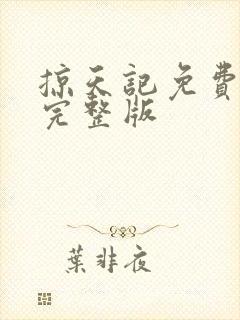 掠天記免費
完整版
葉非夜